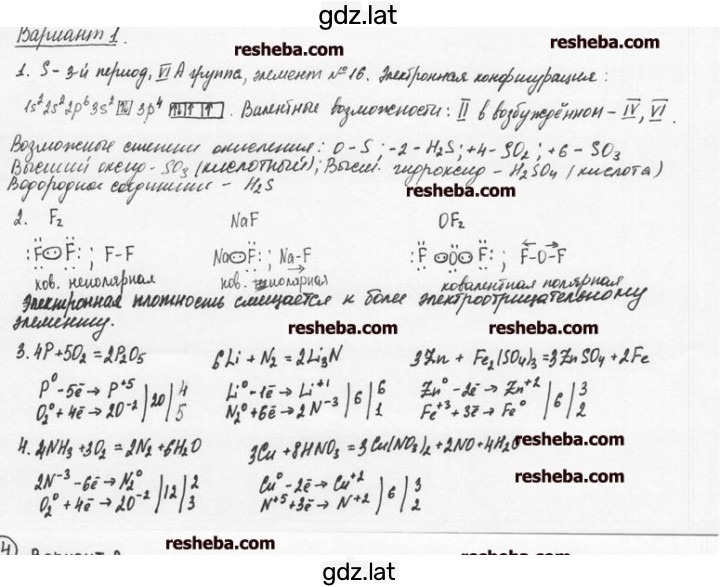 gdz.lat
Вариант 1.
resheba.com resheba.com
1. S - 3-й период, VI А группа, элемент №16. Электронная конфигурация:
1s² 2s² 2p⁶ 3s² [↑↓] 3p⁴ [↑↓|↑|↑]. Валентные возможности: II в возбуждённом - IV, VI.
Возможные степени окисления: 0 - S; -2 - H₂S; +4 - SO₂; +6 - SO₃
Высший оксид - SO₃ (кислотный); Высш. гидроксид - H₂SO₄ (кислота)
Водородное соединение - H₂S
resheba.com
2. F₂ NaF OF₂
:F:F: ; F-F Na:F: ; Na-F :F:O:F: ; F-O-F
ков. неполярная ков. полярная ковалентная полярная
Электронная плотность смещается к более электроотрицательному
элементу.
resheba.com resheba.com
3. 4P + 5O₂ = 2P₂O₅ 6Li + N₂ = 2Li₃N 3Zn + Fe₂(SO₄)₃ = 3ZnSO₄ + 2Fe
P⁰ - 5ē → P⁺⁵ | 20 | 4 Li⁰ - 1ē → Li⁺¹ | 6 | 6 Zn⁰ - 2ē → Zn⁺² | 6 | 3
O₂⁰ + 4ē → 2O⁻² | 5 N₂⁰ + 6ē → 2N⁻³ | 1 Fe⁺³ + 3ē → Fe⁰ | 2
resheba.com
4. 4NH₃ + 3O₂ = 2N₂ + 6H₂O 3Cu + 8HNO₃ = 3Cu(NO₃)₂ + 2NO + 4H₂O
2N⁻³ - 6ē → N₂⁰ | 12 | 2 Cu⁰ - 2ē → Cu⁺² | 6 | 3
O₂⁰ + 4ē → 2O⁻² | 3 N⁺⁵ + 3ē → N⁺² | 2
resheba.com
resheba.com resheba.com
4) Вариант 2
gdz.lat